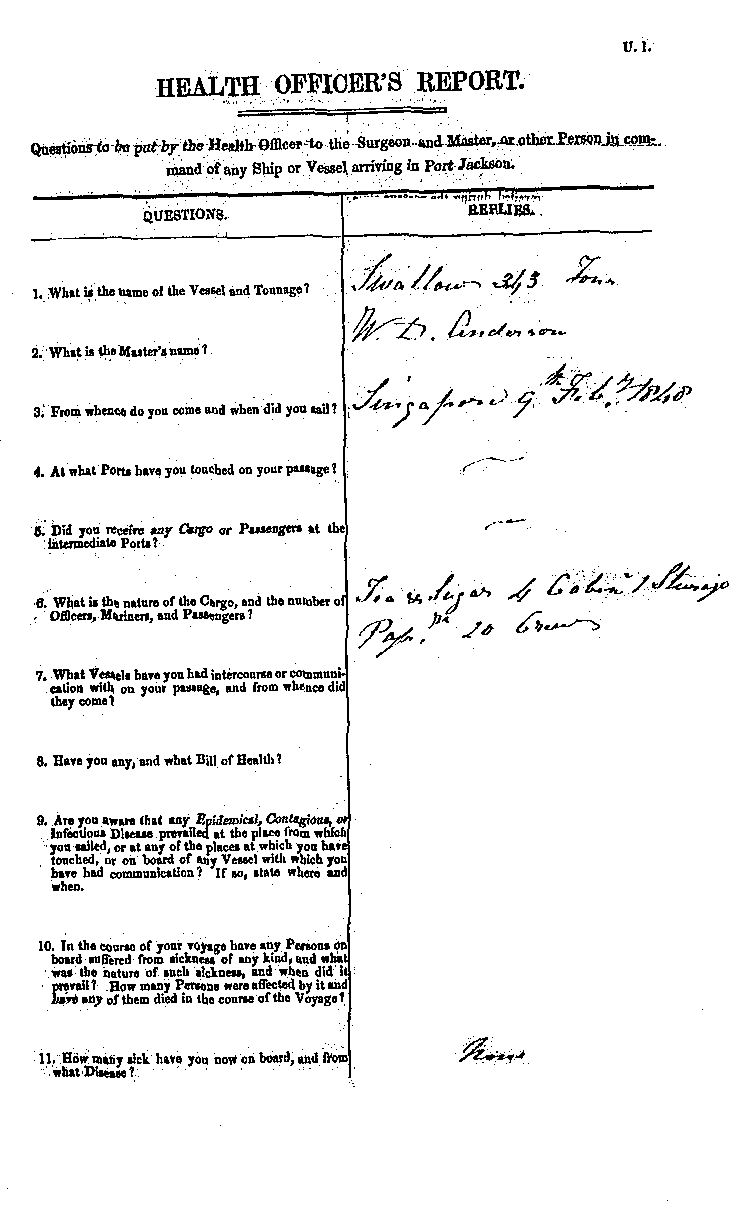 U. 1.
HEALTH OFFICER'S REPORT.
Questions to be put by the Health Officer to the Surgeon and Master, or other Person in com-
mand of any Ship or Vessel arriving in Port Jackson.
QUESTIONS.
REPLIES.
1. What is the name of the Vessel and Tonnage?
Swallow 343 Tons
2. What is the Master's name?
W. D. Anderson
3. From whence do you come and when did you sail?
Singapore 9th Feby. 1848
4. At what Ports have you touched on your passage?
—
5. Did you receive any Cargo or Passengers at the
intermediate Ports?
—
6. What is the nature of the Cargo, and the number of
Officers, Mariners, and Passengers?
Tea & Sugar 4 Cabin 1 Steerage
Passrs. 20 Crew
7. What Vessels have you had intercourse or communi-
cation with on your passage, and from whence did
they come?
8. Have you any, and what Bill of Health?
9. Are you aware that any Epidemical, Contagious, or
Infectious Disease prevailed at the place from which
you sailed, or at any of the places at which you have
touched, or on board of any Vessel with which you
have had communication? If so, state where and
when.
10. In the course of your voyage have any Persons on
board suffered from sickness of any kind, and what
was the nature of such sickness, and when did it
prevail? How many Persons were affected by it and
have any of them died in the course of the Voyage?
11. How many sick have you now on board, and from
what Disease?
None